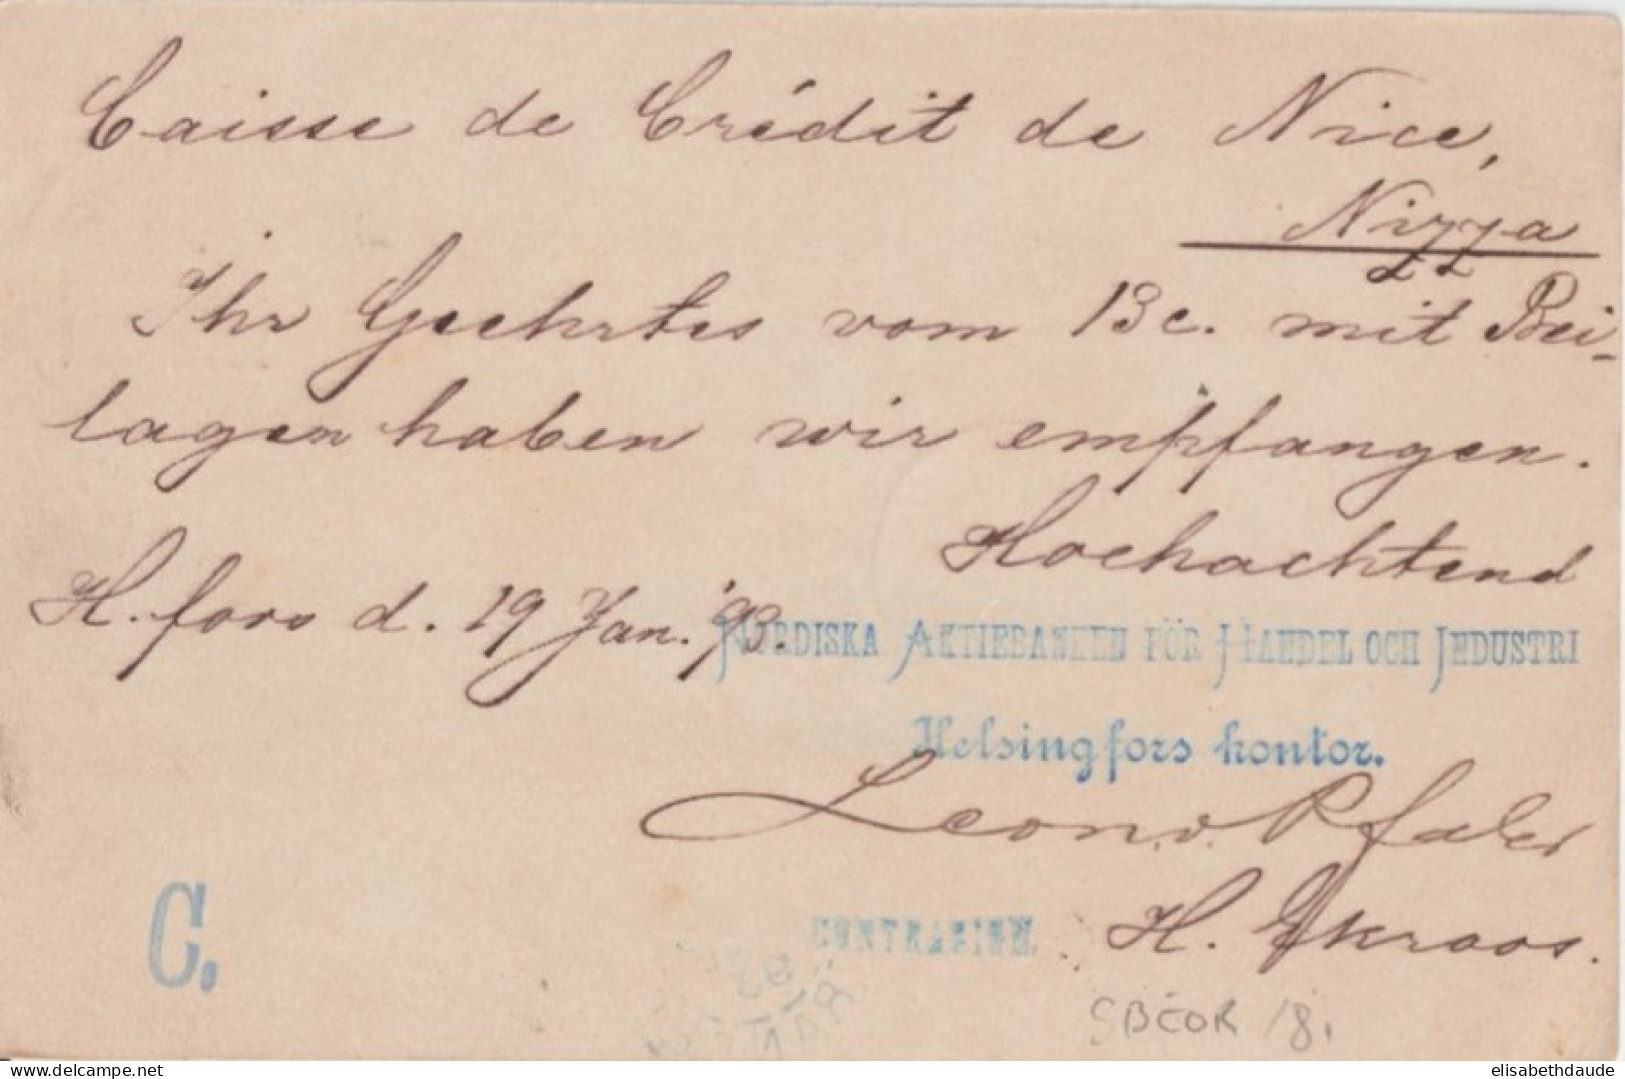 Caisse de Crédit de Nice,
Nizza
Ihr Geehrtes vom 13 c. mit Bei-
lagen haben wir empfangen.
Hochachtend
H.fors d. 19 Jan. '93.
NORDISKA AKTIEBANKEN FÖR HANDEL OCH INDUSTRI
Helsingfors kontor.
Leon v. Pfaler
C.
CONTRASIGN.
H. Ekroos.
elisabethdaude